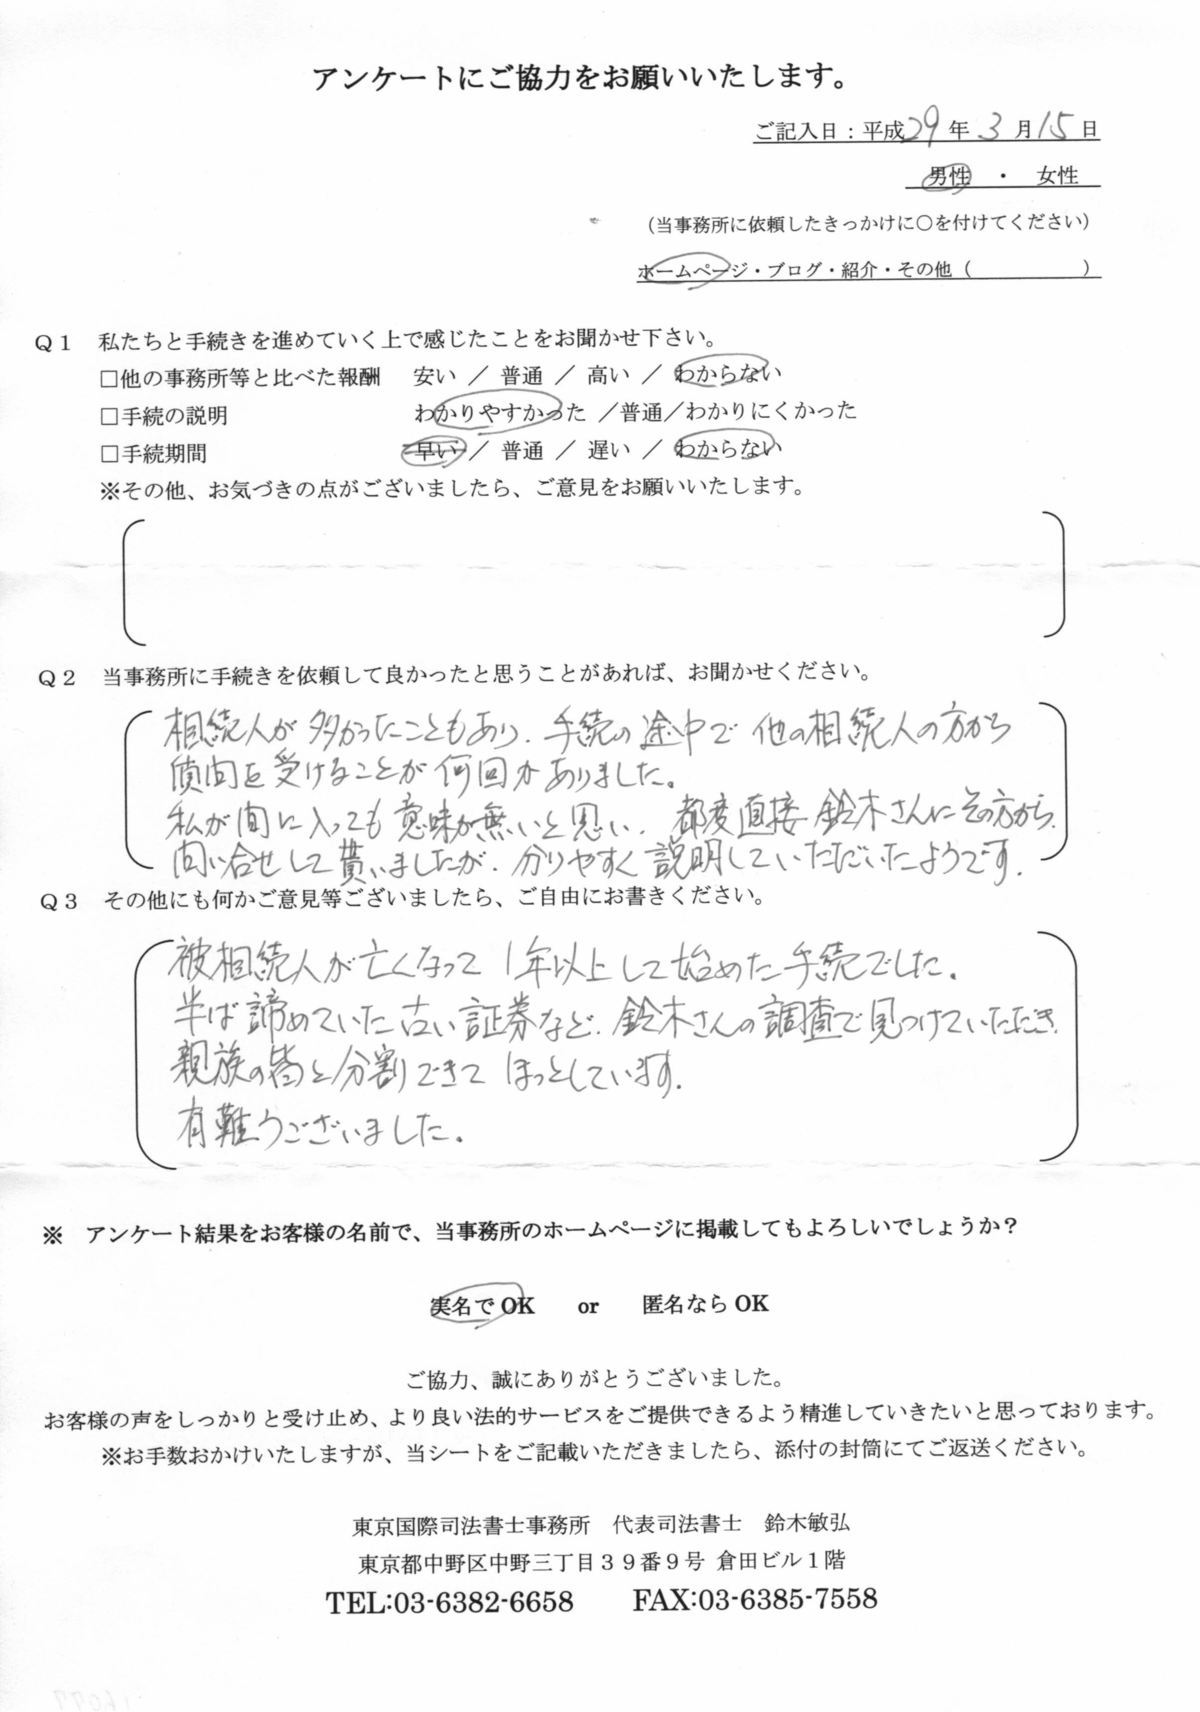 アンケートにご協力をお願いいたします。
ご記入日：平成29年3月15日
男性 ・ 女性
（当事務所に依頼したきっかけに○を付けてください）
ホームページ・ブログ・紹介・その他（ ）
Ｑ１ 私たちと手続きを進めていく上で感じたことをお聞かせ下さい。
□他の事務所等と比べた報酬 安い ／ 普通 ／ 高い ／ わからない
□手続の説明 わかりやすかった ／普通／わかりにくかった
□手続期間 早い ／ 普通 ／ 遅い ／ わからない
※その他、お気づきの点がございましたら、ご意見をお願いいたします。
Ｑ２ 当事務所に手続きを依頼して良かったと思うことがあれば、お聞かせください。
相続人が多かったこともあり、手続の途中で他の相続人の方から
質問を受けることが何回かありました。
私が間に入っても意味が無いと思い、都度直接鈴木さんにその方から、
問い合せして貰いましたが、分りやすく説明していただいたようです。
Ｑ３ その他にも何かご意見等ございましたら、ご自由にお書きください。
被相続人が亡くなって1年以上して始めた手続でした。
半ば諦めていた古い証券など、鈴木さんの調査で見つけていただき、
親族の皆と分割できてほっとしています。
有難うございました。
※ アンケート結果をお客様の名前で、当事務所のホームページに掲載してもよろしいでしょうか？
実名でOK or 匿名ならOK
ご協力、誠にありがとうございました。
お客様の声をしっかりと受け止め、より良い法的サービスをご提供できるよう精進していきたいと思っております。
※お手数おかけいたしますが、当シートをご記載いただきましたら、添付の封筒にてご返送ください。
東京国際司法書士事務所 代表司法書士 鈴木敏弘
東京都中野区中野三丁目３９番９号 倉田ビル１階
TEL:03-6382-6658 FAX:03-6385-7558